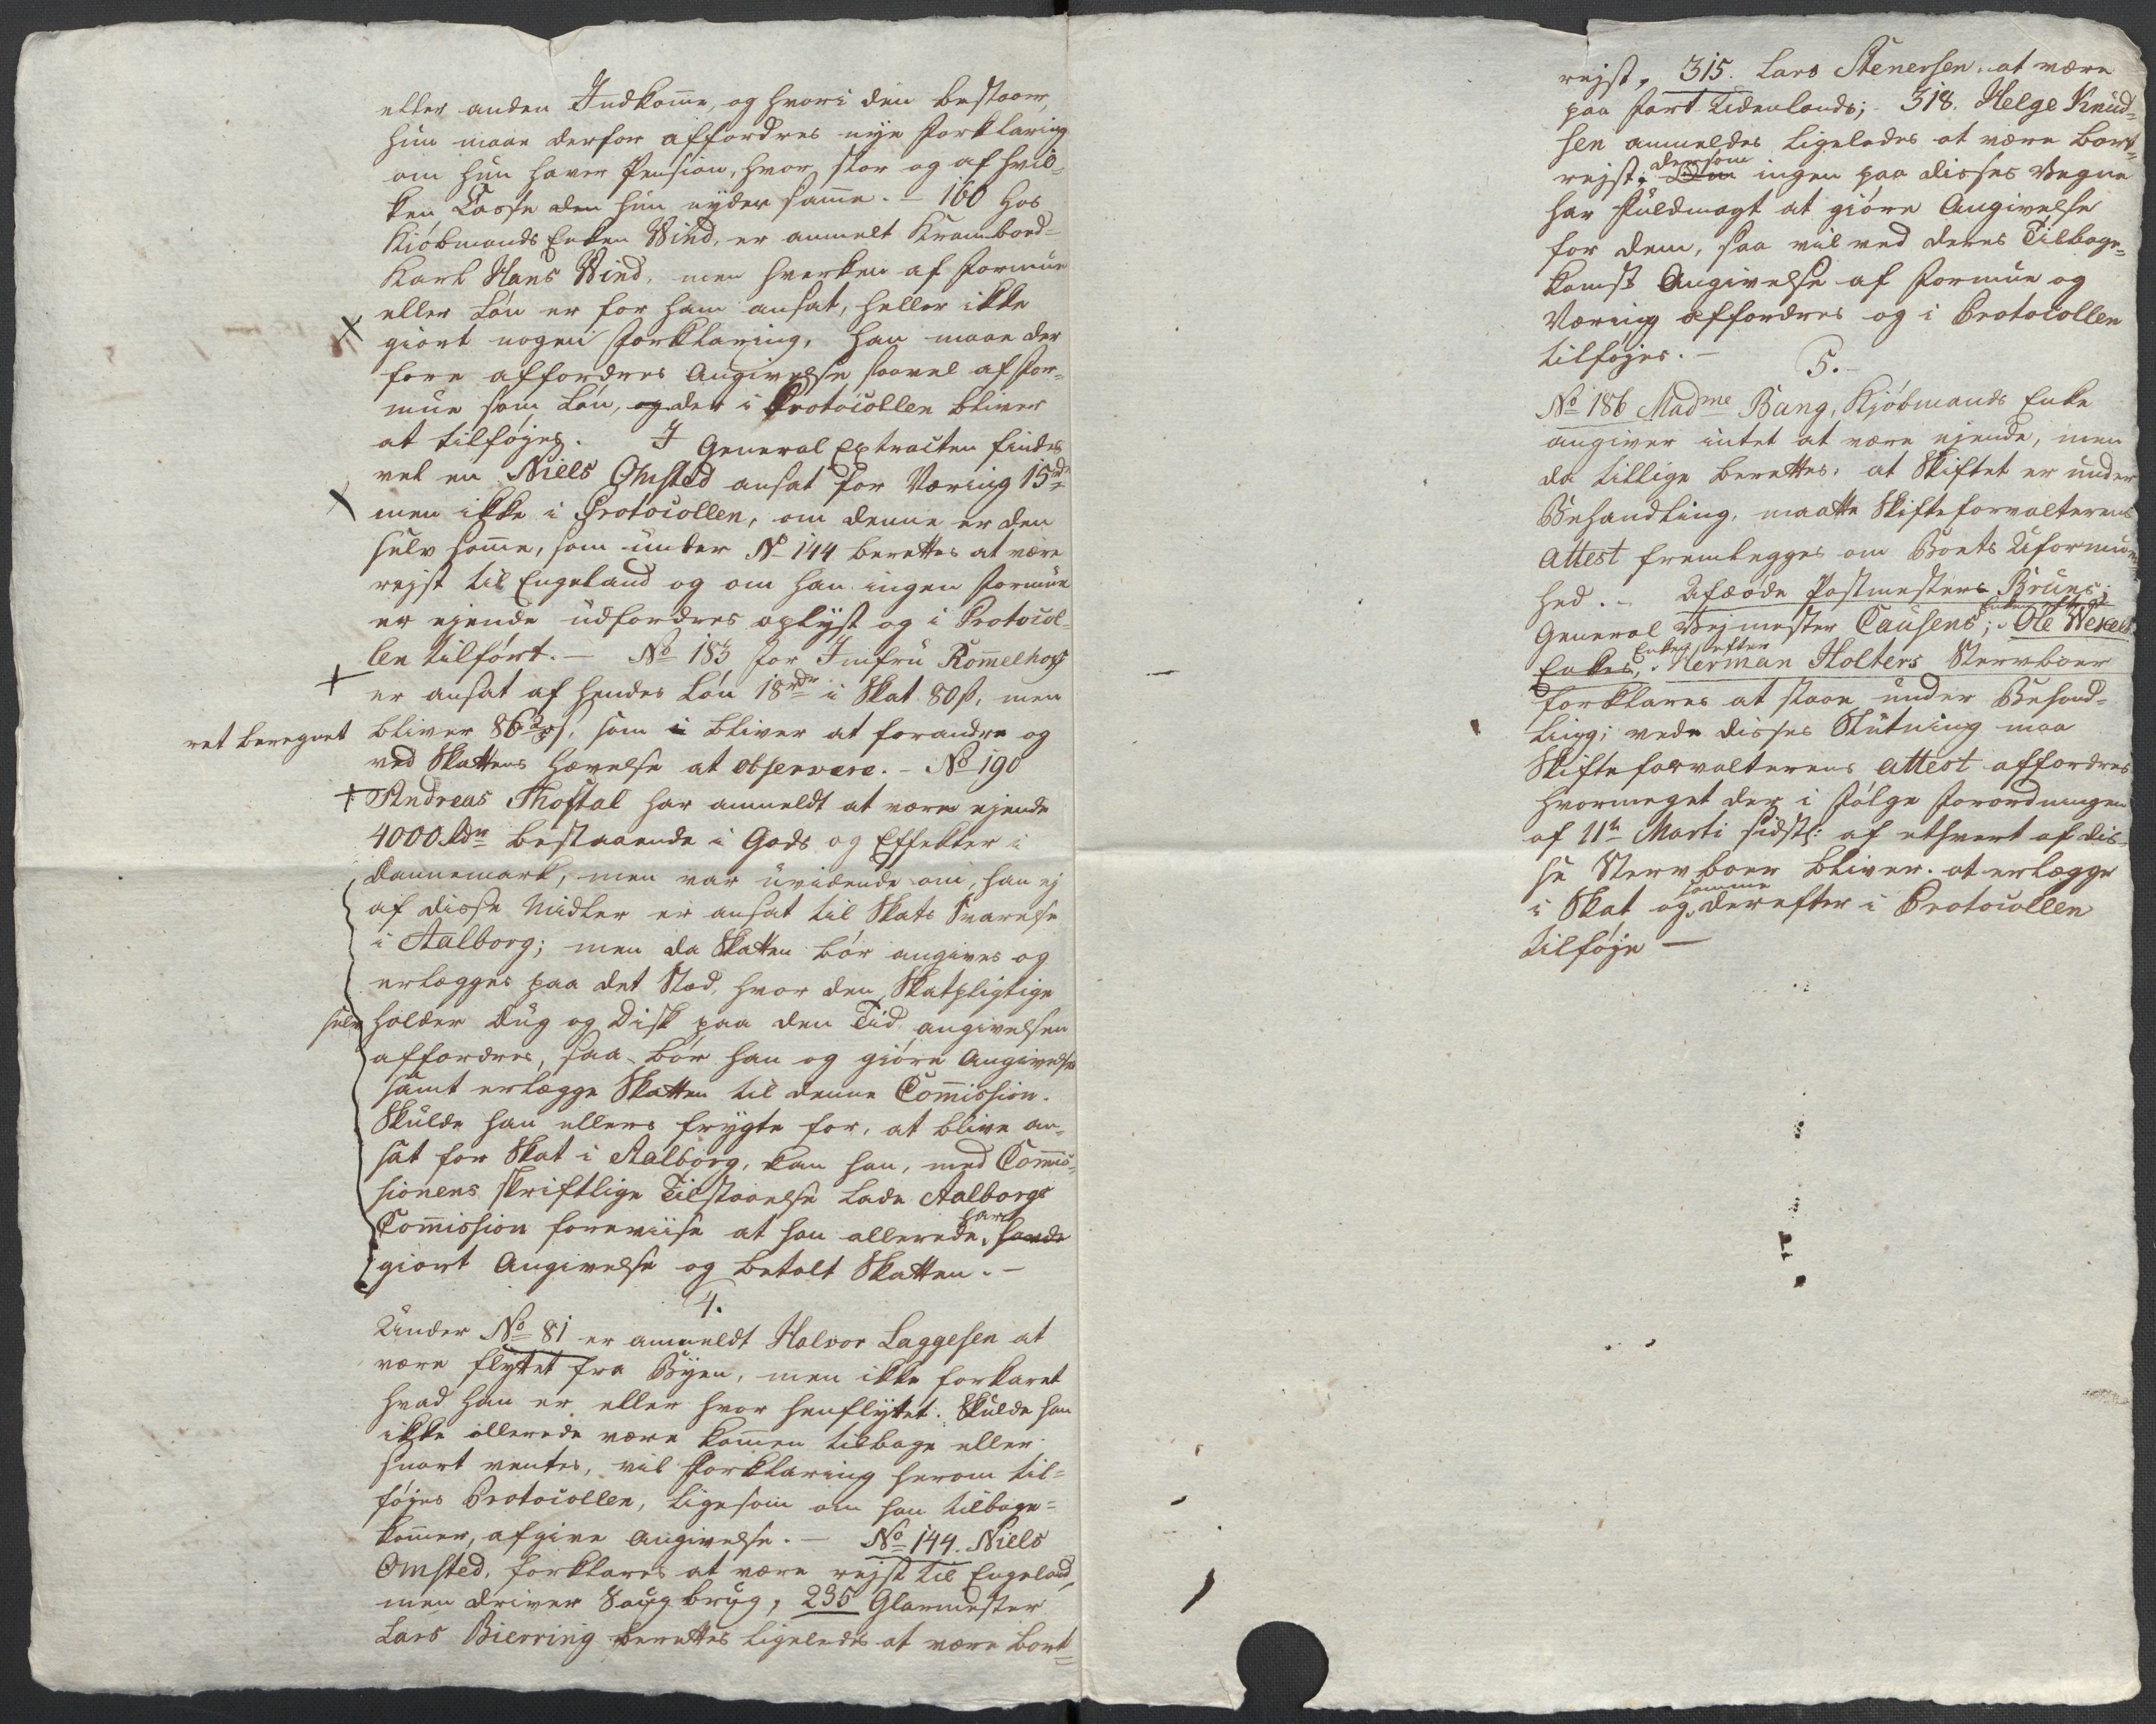 eller anden Indkome, og hvori den bestaaer,
hun maae derfor affordres nye Forklaring
om hun haver Pension, hvor stor og af hvil-
ken Casse den hun nyder same. - 160 hos
Kiöbmands Enken Wind, er anmelt Krambod-
Karl Hans Wind, men hverken af Formue
eller Lön er for ham ansat, heller ikke
giort nogen Forklaring, han maae der
fore affordres Angivelse saavel af For-
mue som Lön, og der i Protocollen bliver
at tilföjes. I General Extracten findes
vel en Niels Omsted ansat for Næring 15rdr
men ikke i Protocollen, om denne er den
selv same, som under No 144 berettes at være
rejst til Engeland og om han ingen Formue
er ejende udfordres oplyst og i Protocol-
len tilfört. - No 183 for Jmfru Romelhoff
er ansat af hendes Lön 18rdr i Skat 80s, men
ret beregnet bliver 86 2/5 s, som i bliver at forandre og
ved Skattens Hævelse at observere. - No 190
Andreas Thostal har anmeldt at være ejende
4000 rdr bestaaende i Gods og Effekter i
Dannemark, men var uvidende om, han ej
af disse Midler er ansat til Skats Svarelse
i Aalborg; men da Skatten bör angives og
erlægges paa det Sted, hvor den Skatpligtige
selv holder Dug og Disk paa den Tid angivelsen
affordres, saa bör han og giöre Angivelse
samt erlægge Skatten til denne Comission.
Skulde han ellers frygte for, at blive an-
sat for Skat i Aalborg, kan han, med Comis-
sionens skriftlige Tilstaaelse lade Aalborgs
Comission foreviise at han allerede har havde
giort Angivelse og betalt Skatten. -
4.
Under No 81 er anmeldt Halvor Laggesen at
være flyttet fra Byen, men ikke forklaret
hvad han er eller hvor henflyttet. Skulde han
ikke allerede være komen tilbage eller
snart ventes, vil Forklaring herom til-
föjes Protocollen, ligesom om han tilbage-
komer, afgive Angivelse. - No 144. Niels
Omsted, forklares at være rejst til Engeland,
men driver Saugbrug, 235 Glarmester
Lars Bierring berettes ligeledes at være bort-
rejst, 315. Lars Stenersen, at være
paa Fart udenlands; 318. Helge Knud-
sen anmeldes ligeledes at være bort-
rejst; dersom ingen paa disses Vegne
har Fuldmagt at giöre Angivelse
for dem, saa vil ved deres Tilbage-
komst Angivelse af Formue og
Næring affordres og i Protocollen
tilföjes. -
5. -
No 186 Madme Bang, Kjöbmands Enke
angiver intet at være ejende, men
da tillige berettes, at Skiftet er under
Behandling, maatte Skifteforvalterens
attest fremlegges om Boets Uformuen-
hed. - Afdöde Postmester Bruns;
General Vejmester Causens; Enke efter Ole Wexels
Enkes, Enkes efter Herman Holters Stervboer
forklares at staae under Behand-
ling; vede disses Slutning maa
Skifteforvalterens attest affordres
hvormeget der i Fölge Forordningen
af 11te Marti sidstl: af ethvert af dis-
se Stervboer bliver at erlægge
i Skat og samme derefter i Protocollen
tilföje -